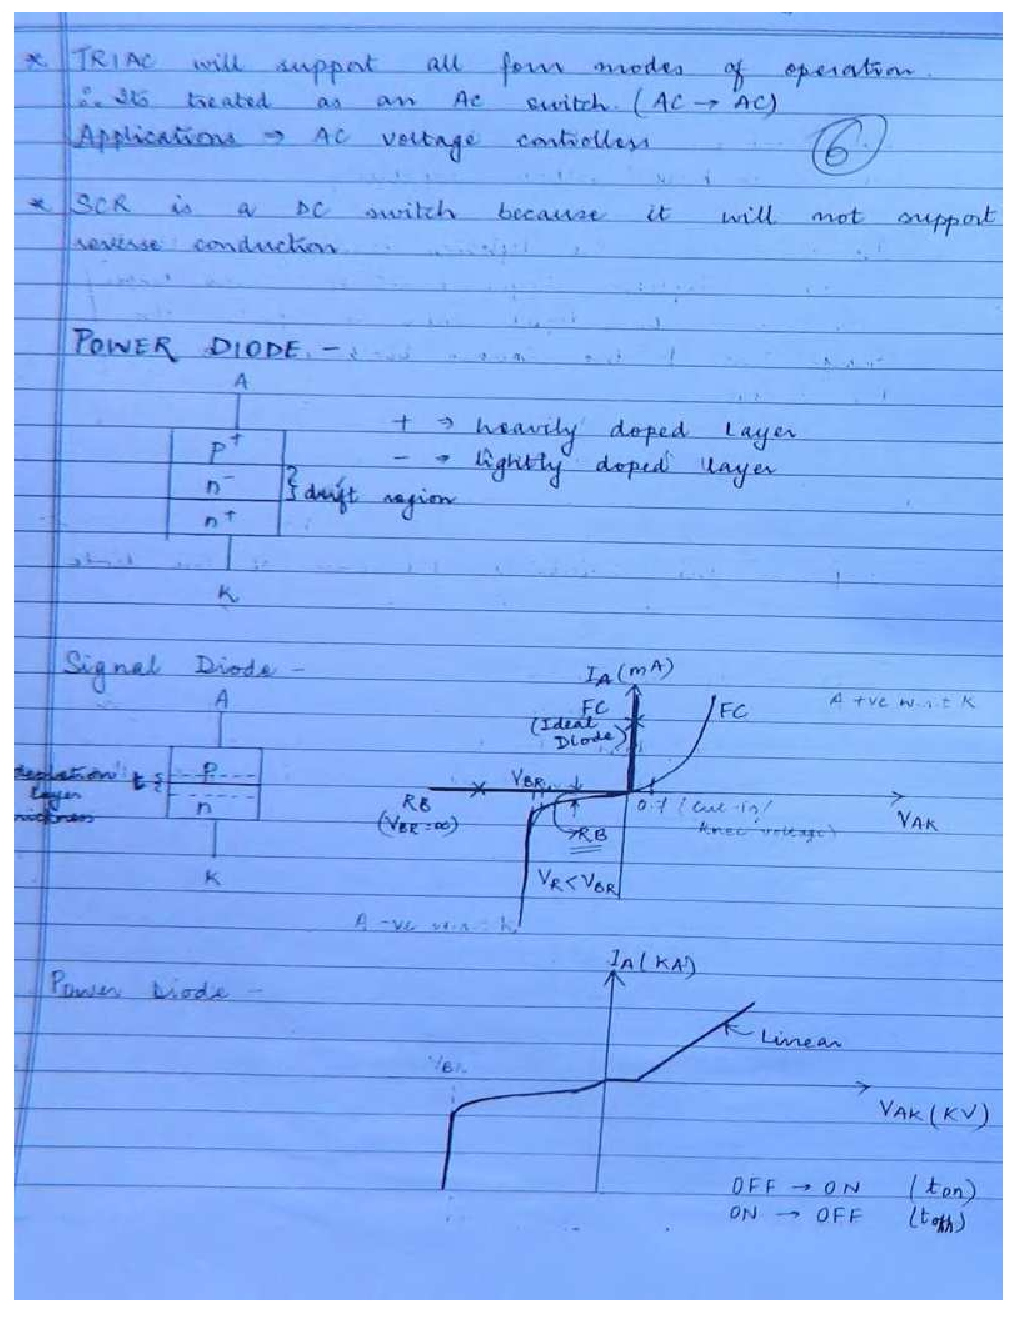 * TRIAC will support all four modes of operation.
∴ Its treated as an AC switch. (AC → AC)
Applications → AC voltage controllers
6
* SCR is a DC switch because it will not support
reverse conduction
POWER DIODE. -
A
p+
n-
n+
} drift region
K
+ → heavily doped layer
- → lightly doped layer
Signal Diode -
A
p
n
K
depletion layer thickness
t
IA (mA)
FC
(Ideal
Diode)
FC
A +ve w.r.t K
VBR
RB
(VBR = ∞)
0.7 (cut-in/
knee voltage)
VAK
RB
VR < VBR
A -ve w.r.t K
Power Diode -
IA (KA)
Linear
VBR
VAK (KV)
OFF → ON (ton)
ON → OFF (toff)